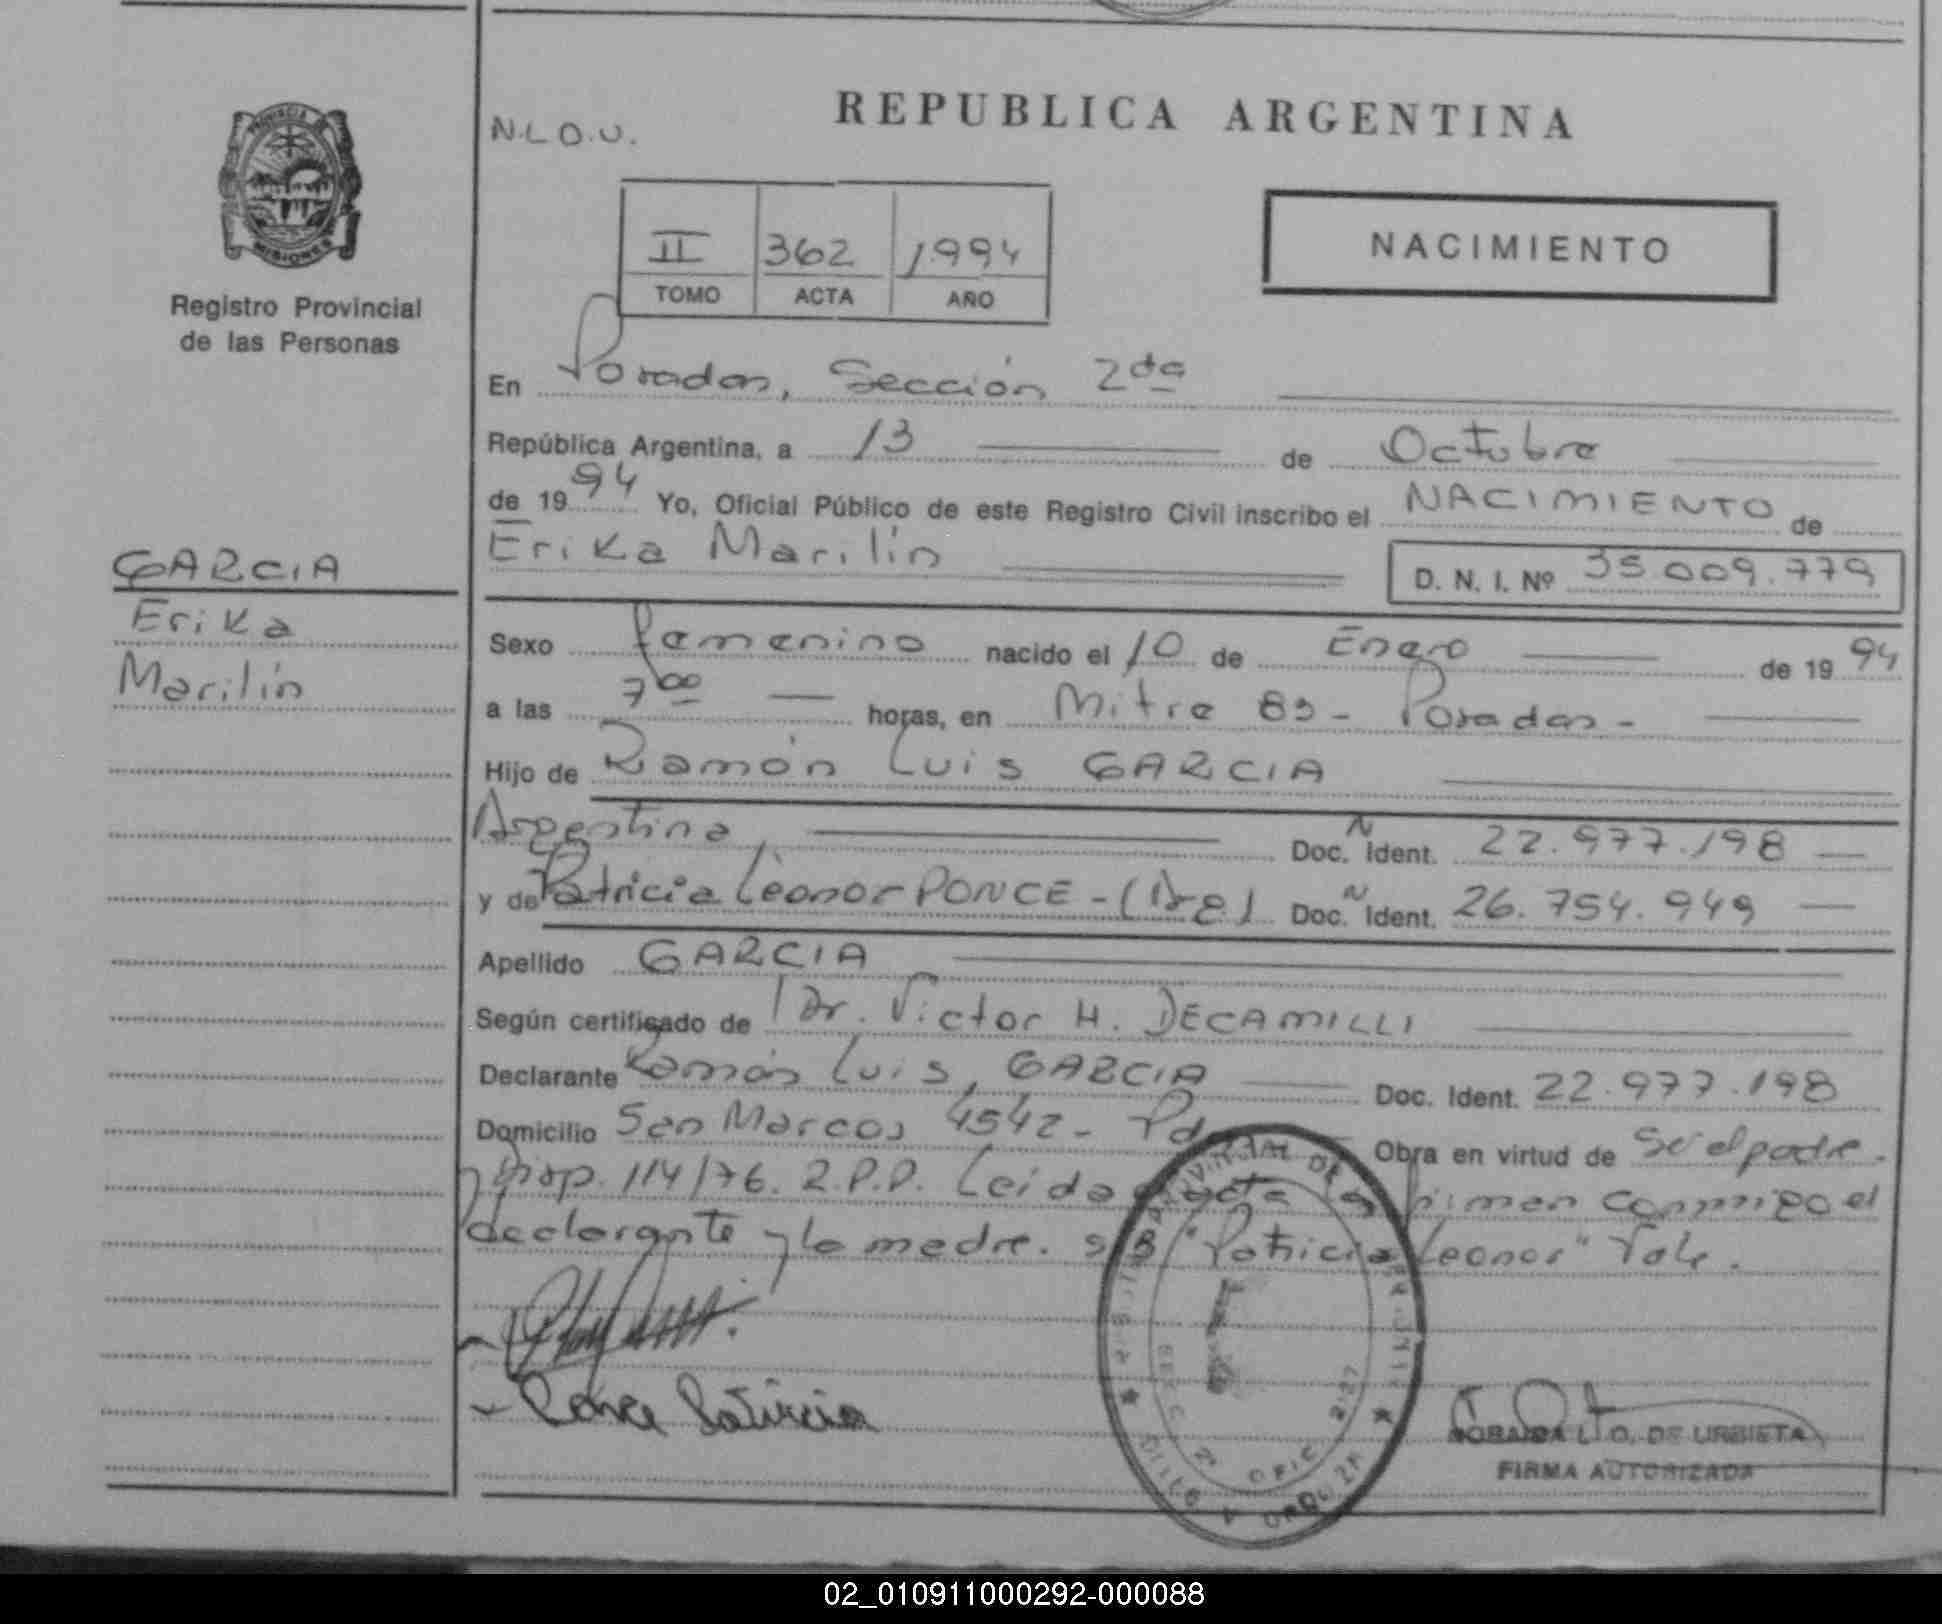 PROVINCIA DE
MISIONES
Registro Provincial
de las Personas
GARCIA
Erika
Marilín
N.L.O.U.
REPUBLICA ARGENTINA
II 362 1994
TOMO ACTA AÑO
NACIMIENTO
En Posadas, Sección 2da
República Argentina, a 13 de Octubre
de 1994 Yo, Oficial Público de este Registro Civil inscribo el NACIMIENTO de
Erika Marilín D. N. I. Nº 35.009.779
Sexo femenino nacido el 10 de Enero de 1994
a las 7 00 horas, en Mitre 89 - Posadas -
Hijo de Ramón Luis GARCIA
Argentina Doc. Ident. 22.977.198
y de Patricia Leonor PONCE - (Arg) Doc. Ident. 26.754.949
Apellido GARCIA
Según certificado de Dr. Victor H. DECAMILLI
Declarante Ramón Luis, GARCIA Doc. Ident. 22.977.198
Domicilio San Marcos 4542 - Obra en virtud de Ser el padre.
y Disp. 114/76. R.P.P. Leida el acta la firman conmigo el
declarante y la madre. s/B "Patricia Leonor" Vale.
Ponce Patricia
DE URBIETA
FIRMA AUTORIZADA
02_010911000292-000088